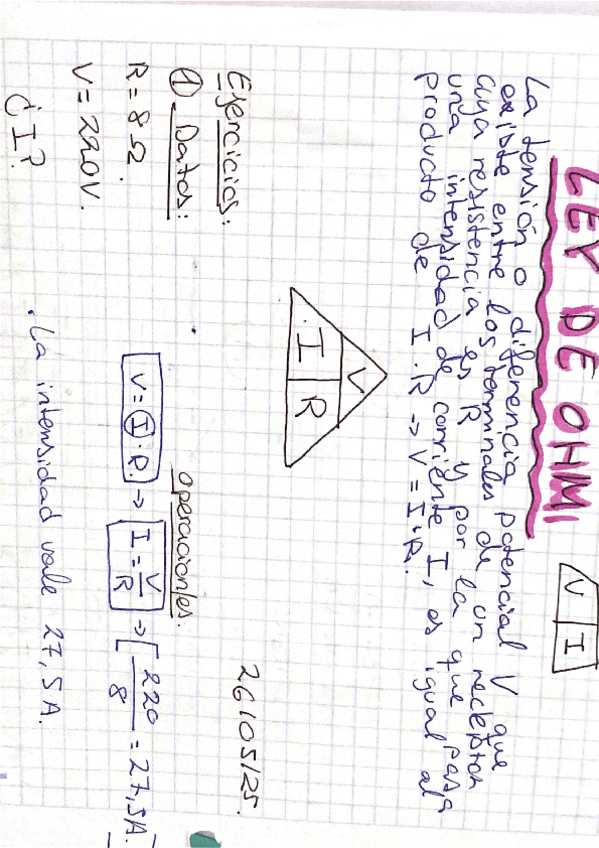 LEY DE OHM
V I
La tensión o diferencia potencial V que
existe entre los terminales de un receptor
cuya resistencia es R y por la que pasa
una intensidad de corriente I, es igual al
producto de I · R → V = I · R.
V
I R
26/05/25.
Ejercicios:
① Datos:
R = 8 Ω.
V = 220 V.
¿I?
operaciones:
V = I · R. → I = V/R → 220/8 = 27,5 A.
· La intensidad vale 27,5 A.